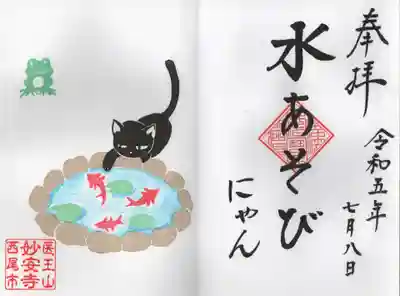 奉拝
水あそび
にゃん
令和五年
七月八日
医王山
妙安寺
西尾市